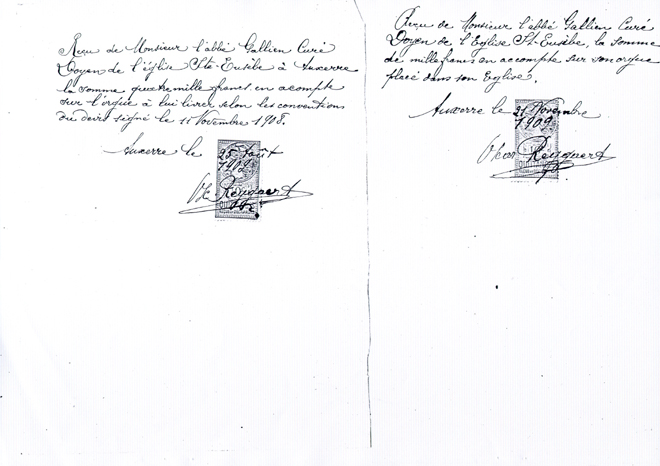 Reçu de Monsieur l'abbé Gallien Curé
Doyen de l'église Ste-Eusèbe à Auxerre
la somme quatre mille francs en acompte
sur l'orgue à lui livrer selon les conventions
du devis signé le 11 Novembre 1908.
Auxerre le 25 Août
1909
Reçu de Monsieur l'abbé Gallien Curé
Doyen de l'Eglise St-Eusèbe, la somme
de mille francs en accompte sur son orgue
placé dans son Eglise.
Auxerre le 21 Novembre
1909